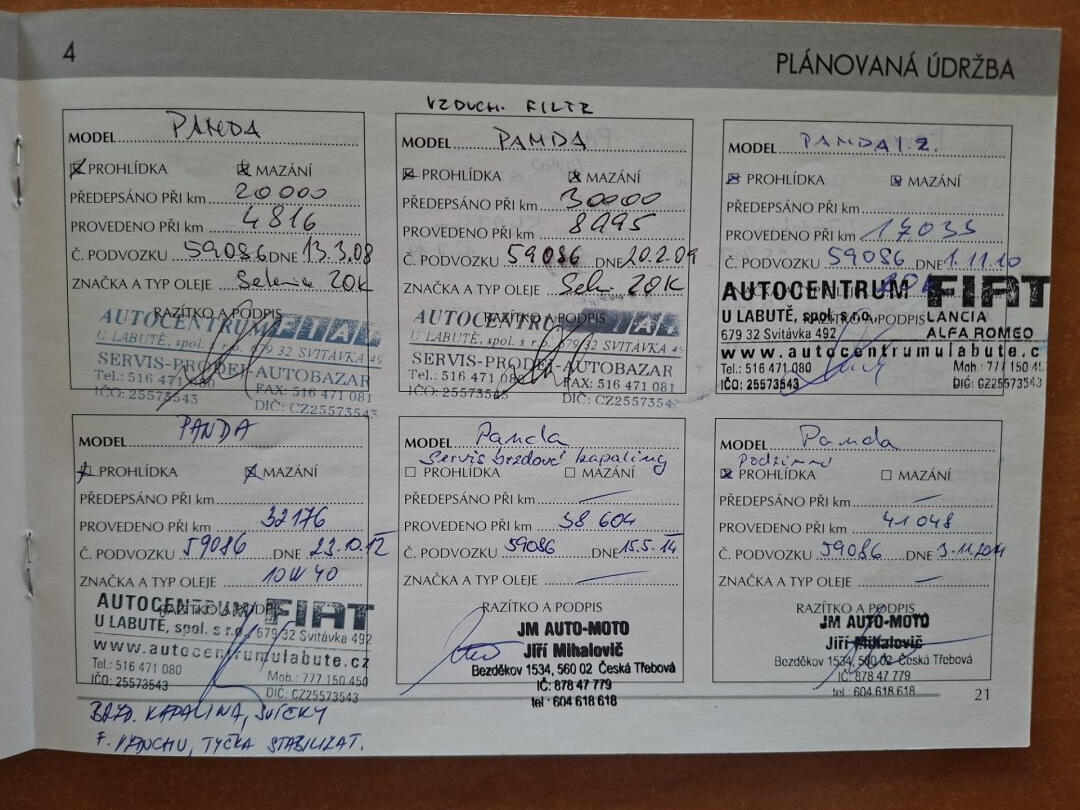 4
PLÁNOVANÁ ÚDRŽBA
MODEL PANDA
PROHLÍDKA MAZÁNÍ
PŘEDEPSÁNO PŘI km 20000
PROVEDENO PŘI km 4816
Č. PODVOZKU 59086 DNE 13.3.08
ZNAČKA A TYP OLEJE Selenia 20K
RAZÍTKO A PODPIS
AUTOCENTRUM FIAT
U LABUTĚ, spol. s r.o., 679 32 SVITÁVKA 49
SERVIS-PRODEJ-AUTOBAZAR
Tel.: 516 471 080 FAX: 516 471 081
IČO: 25573543 DIČ: CZ25573543
VZDUCH. FILTR
MODEL PANDA
PROHLÍDKA MAZÁNÍ
PŘEDEPSÁNO PŘI km 30000
PROVEDENO PŘI km 8995
Č. PODVOZKU 59086 DNE 20.2.09
ZNAČKA A TYP OLEJE Sel. 20K
RAZÍTKO A PODPIS
AUTOCENTRUM FIAT
U LABUTĚ, spol. s r.o., 679 32 SVITÁVKA 49
SERVIS-PRODEJ-AUTOBAZAR
Tel.: 516 471 080 FAX: 516 471 081
IČO: 25573543 DIČ: CZ2557354
MODEL PANDA 1.2.
PROHLÍDKA MAZÁNÍ
PŘEDEPSÁNO PŘI km
PROVEDENO PŘI km 17035
Č. PODVOZKU 59086 DNE 1.11.10
ZNAČKA A TYP OLEJE 20K
RAZÍTKO A PODPIS
AUTOCENTRUM FIAT
U LABUTĚ, spol. s r.o. LANCIA
679 32 Svitávka 492 ALFA ROMEO
www.autocentrumulabute.c
Tel.: 516 471 080 Mob.: 777 150 45
IČO: 25573543 DIČ: CZ25573543
MODEL PANDA
PROHLÍDKA MAZÁNÍ
PŘEDEPSÁNO PŘI km
PROVEDENO PŘI km 32176
Č. PODVOZKU 59086 DNE 23.10.12
ZNAČKA A TYP OLEJE 10W40
RAZÍTKO A PODPIS
AUTOCENTRUM FIAT
U LABUTĚ, spol. s r.o., 679 32 Svitávka 492
www.autocentrumulabute.cz
Tel.: 516 471 080 Mob.: 777 150 450
IČO: 25573543 DIČ: CZ25573543
BRZD. KAPALINA, SVÍČKY
F. VZDUCHU, TYČKA STABILIZAT.
MODEL Panda
Servis brzdové kapaliny
PROHLÍDKA MAZÁNÍ
PŘEDEPSÁNO PŘI km —
PROVEDENO PŘI km 38 604
Č. PODVOZKU 59086 DNE 15.5.14
ZNAČKA A TYP OLEJE —
RAZÍTKO A PODPIS
JM AUTO-MOTO
Jiří Mihalovič
Bezděkov 1534, 560 02 Česká Třebová
IČ: 878 47 779
tel.: 604 618 618
MODEL Panda
Podzimní
PROHLÍDKA MAZÁNÍ
PŘEDEPSÁNO PŘI km —
PROVEDENO PŘI km 41 048
Č. PODVOZKU 59086 DNE 3.11.2014
ZNAČKA A TYP OLEJE —
RAZÍTKO A PODPIS
JM AUTO-MOTO
Jiří Mihalovič
Bezděkov 1534, 560 02 Česká Třebová
IČ: 878 47 779
tel.: 604 618 618
21